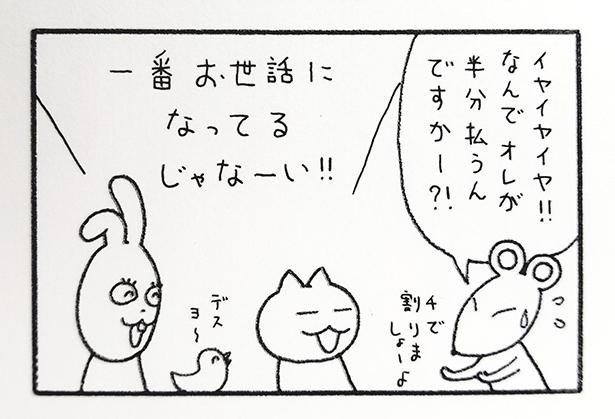 イヤイヤイヤ!!
なんでオレが
半分払うん
ですかー?!
4で
割りま
しょーよ
一番お世話に
なってる
じゃなーい!!
デス
ヨ〜